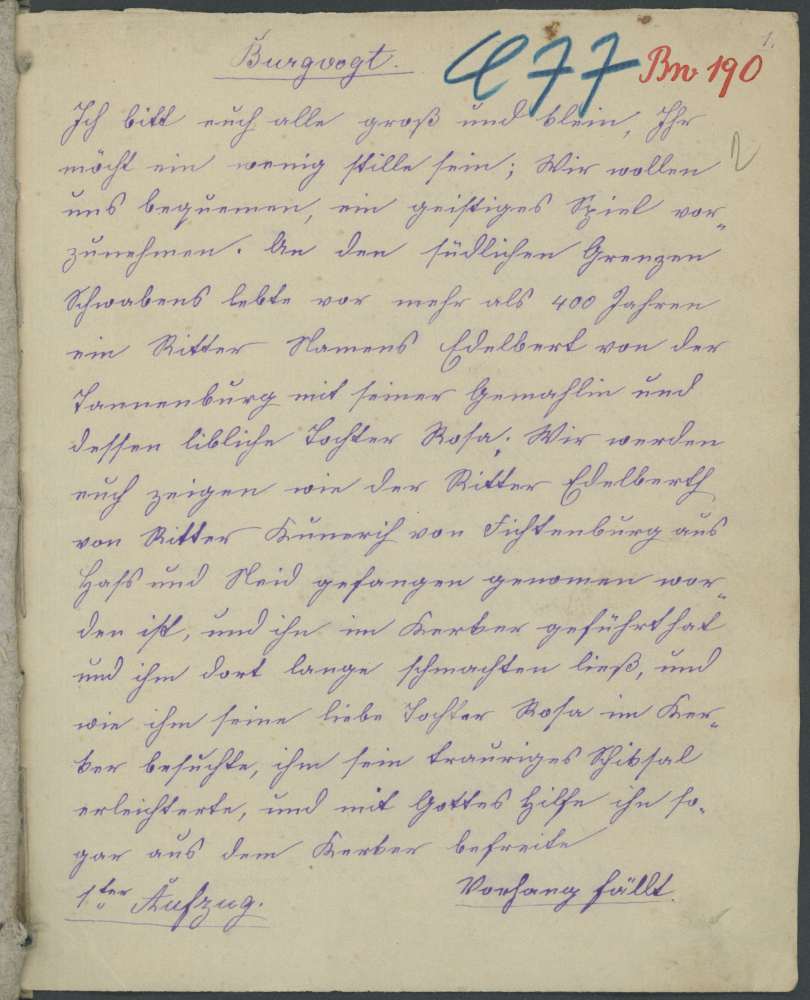 1.
Burgvogt.
477
Bn 190
2
Ich bitt euch alle groß und klein, Ihr
möcht ein wenig stille sein; Wir wollen
uns bequemen, ein geistiges Spiel vor-
zunehmen. An den südlichen Grenzen
Schwabens lebte vor mehr als 400 Jahren
ein Ritter Namens Edelbert von der
Tannenburg mit seiner Gemahlin und
dessen libliche Tochter Rosa. Wir werden
euch zeigen wie der Ritter Edelberth
von Ritter Kunerich von Fichtenburg aus
Haß und Neid gefangen genomen wor-
den ist, und ihn im Kerker geführt hat
und ihm dort lange schmachten ließ, und
wie ihm seine liebe Tochter Rosa im Ker-
ker besuchte, ihm sein trauriges Schiksal
erleichterte, und mit Gottes Hilfe ihn so-
gar aus dem Kerker befreite
Vorhang fällt.
1ter Aufzug.